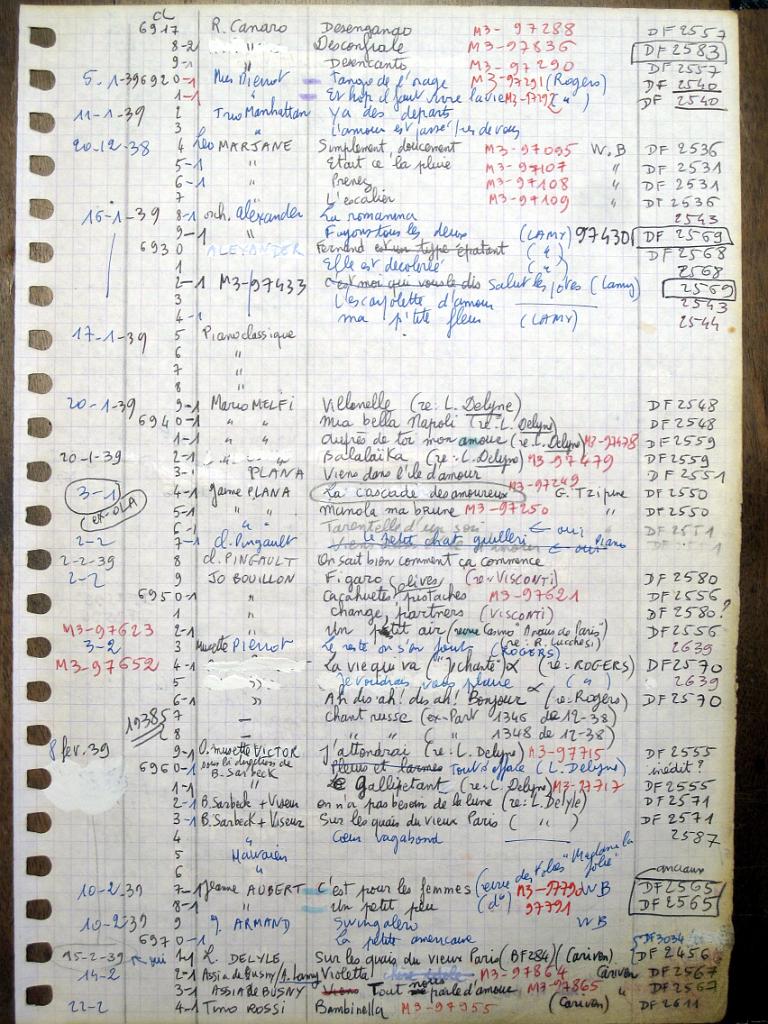 CL
6917 R. Canaro Desengano M3-97288 DF 2557
8-2 " Desconfiale M3-97836 DF 2583
9-1 " Desencanto M3-97290 DF 2557
5-1-39 6920-1 Mus Pierrot Tango de l'orage M3-97291 (Rogers) DF 2540
1-1 " Et hop il faut vivre la vie M3-97292 (") DF 2540
11-1-39 2 Trio Manhattan Ya des départs
3 " L'amour est passé près de vous
20-12-38 4 Léo MARJANE Simplement, doucement M3-97095 W.B DF 2536
5-1 " Etait ce la pluie M3-97107 " DF 2531
6-1 " Prenez M3-97108 " DF 2531
7 " L'escalier M3-97109 " DF 2536
16-1-39 8-1 orch. Alexander La romanina 2543
9-1 " Fuyons tous les deux (LAMY) 97430 DF 2569
6930 ALEXANDER Fernand est un type épatant (") DF 2568
1 Elle est décolorée (") 2568
2-1 M3-97433 c'est moi qui vous le dis Salut les potes (Lamy) 2569
3 L'escarpolette d'amour 2543
4-1 ma p'tite fleur (LAMY) 2544
17-1-39 5 Piano classique
6 "
7 "
8 "
20-1-39 9-1 Mario MELFI Villanelle (re: L. Delyne) DF 2548
6940-1 " " Mia bella Napoli (re: L. Delyne) DF 2548
1-1 " " Auprès de toi mon amour (re: L. Delyne) M3-97478 DF 2559
20-1-39 2-1 " " Balalaïka (re: L. Delyne) M3-97479 DF 2559
3-1 " PLANA Viens dans l'île d'amour DF 2551
3-1 4-1 Jaime PLANA La cascade des amoureux M3-97249 G. Tzipine DF 2550
(ex-OLA) 5-1 " " Manola ma brune M3-97250 " DF 2550
6-1 " " Tarentelle d'un soir ← oui DF 2551
2-2 7-1 cl. Pingault Le petit chat guilleri ← oui Piano
2-2-39 8 cl. PINGAULT On sait bien comment ça commence
2-2 9 JO BOUILLON Figaro (re-VISCONTI) DF 2580
6950-1 " Cacahuètes pistaches olives M3-97621 DF 2556
1 " change, partners (VISCONTI) DF 2580?
M3-97623 2-1 " Un petit air (revue Casino "Amours de Paris") DF 2556
3-2 3 Musette Pierrot Le reste on s'en fout (re: R. Lucchesi) (ROGERS) 2639
M3-97652 4-1 " La vie qui va ("chanté") (re: ROGERS) DF 2570
5 " Je voudrais vous plaire (") 2639
6-1 " Ah dis ah! dis ah! Bonjour (re: Rogers) DF 2570
19385 7 — chant russe (ex-Part 1346 de 12-38)
8 — " " ( " 1348 de 12-38)
8 fév. 39 9-1 O. musette VICTOR J'attendrai (re: L. Delyne) M3-97715 DF 2555
6960-1 sous la direction de Pleurs et larmes Tout s'efface (L. Delyne) inédit?
1-1 B. Sarbeck Gallipetant (re: L. Delyne) M3-97717 DF 2555
2-1 B. Sarbeck + Viseur on n'a pas besoin de la lune (re: L. Delyle) DF 2571
3-1 B. Sarbeck + Viseur Sur les quais du vieux Paris ( " ) DF 2571
4 Cœur vagabond 2587
5 Hawaïen
6 "
10-2-39 7-1 Jeanne AUBERT C'est pour les femmes (revue des Folies "Madame la folie") M3-97790 WB anciaux DF 2565
8-1 " Un petit peu (d°) 97791 DF 2565
10-2-39 9 J. ARMAND Swingalero WB
6970-1 La petite americaine DF 3034
15-2-39 ← oui 1-1 L. DELYLE Sur les quais du vieux Paris (BF284) (Cariven) DF 2456
14-2 2-1 Assia de Busny / A. Lamy Violetta M3-97864 Cariven DF 2567
3-1 ASSIA DE BUSNY Tout nous parle d'amour M3-97865 " DF 2567
22-2 4-1 Tino ROSSI Bambinella M3-97955 (Cariven) DF 2611